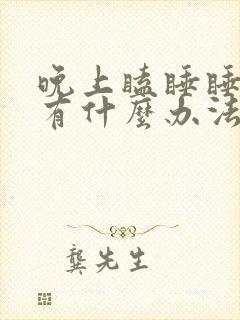 晚上瞌睡睡
有什麼办法
龔先生